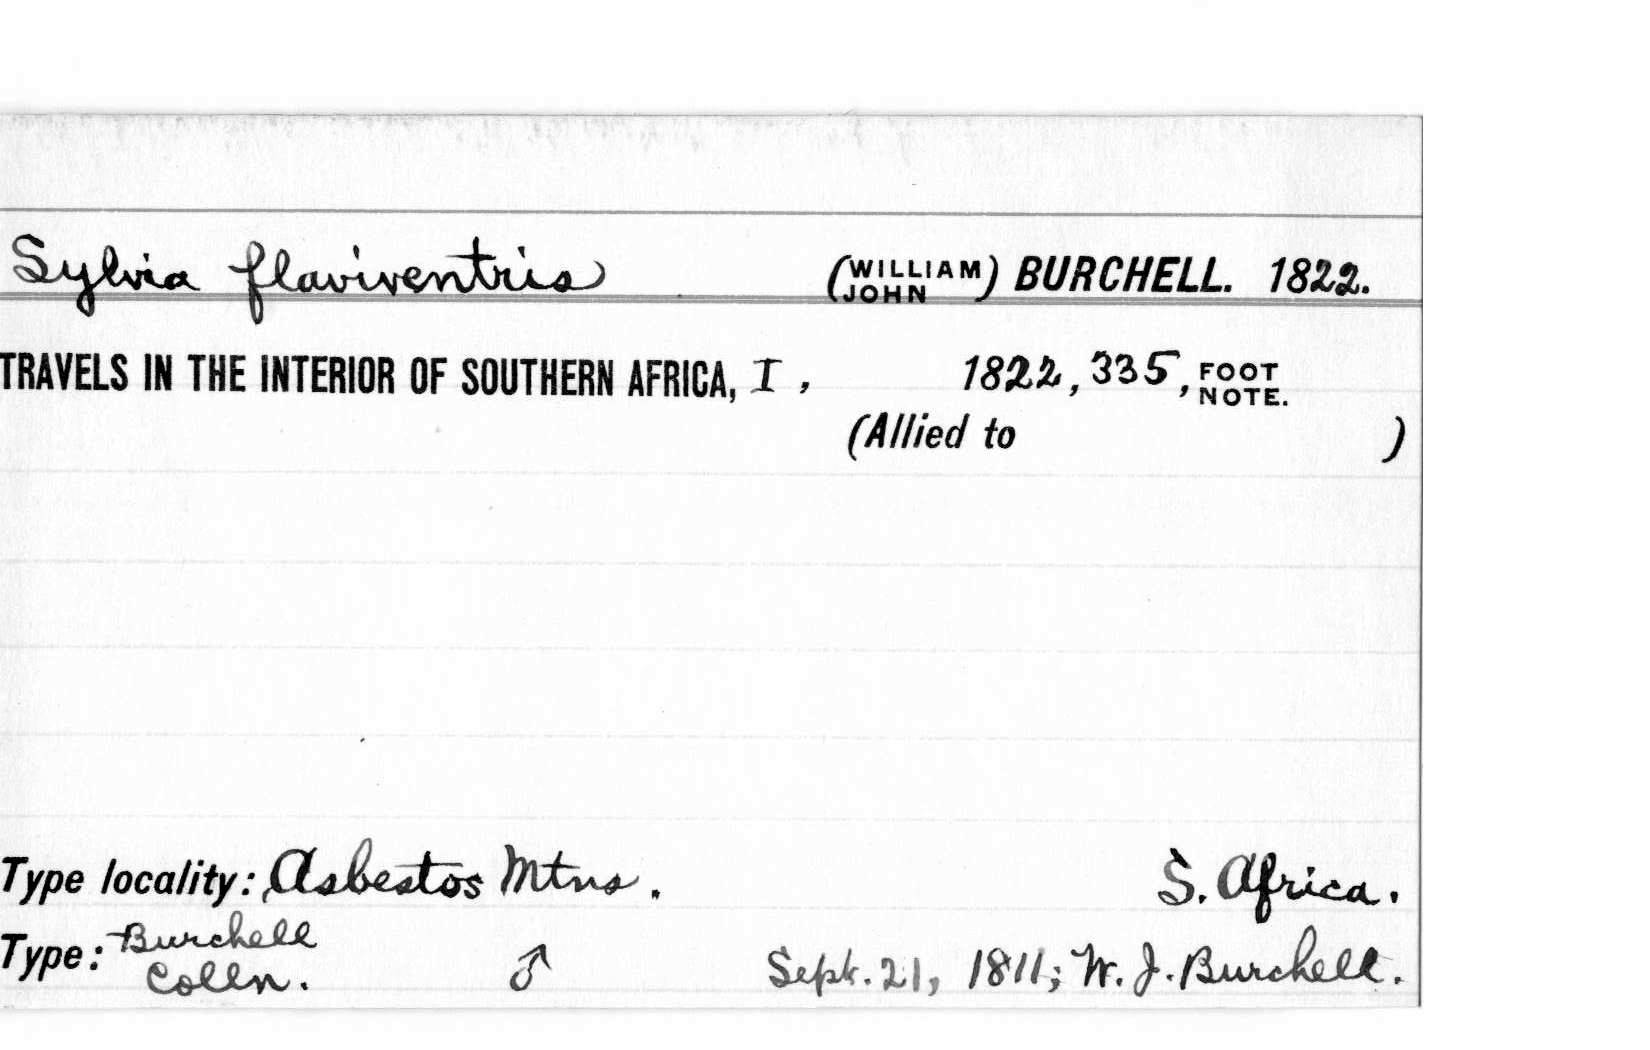 Sylvia flaviventris (WILLIAM JOHN) BURCHELL. 1822.
TRAVELS IN THE INTERIOR OF SOUTHERN AFRICA, I, 1822, 335, FOOT NOTE.
(Allied to )
Type locality: Asbestos Mtns. S. Africa.
Type: Burchell Colln. ♂ Sept. 21, 1811; W. J. Burchell.